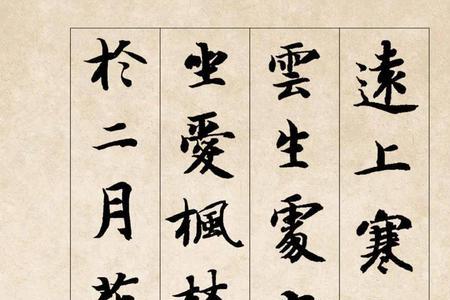 遠上寒
雲生處
坐愛楓
於二月